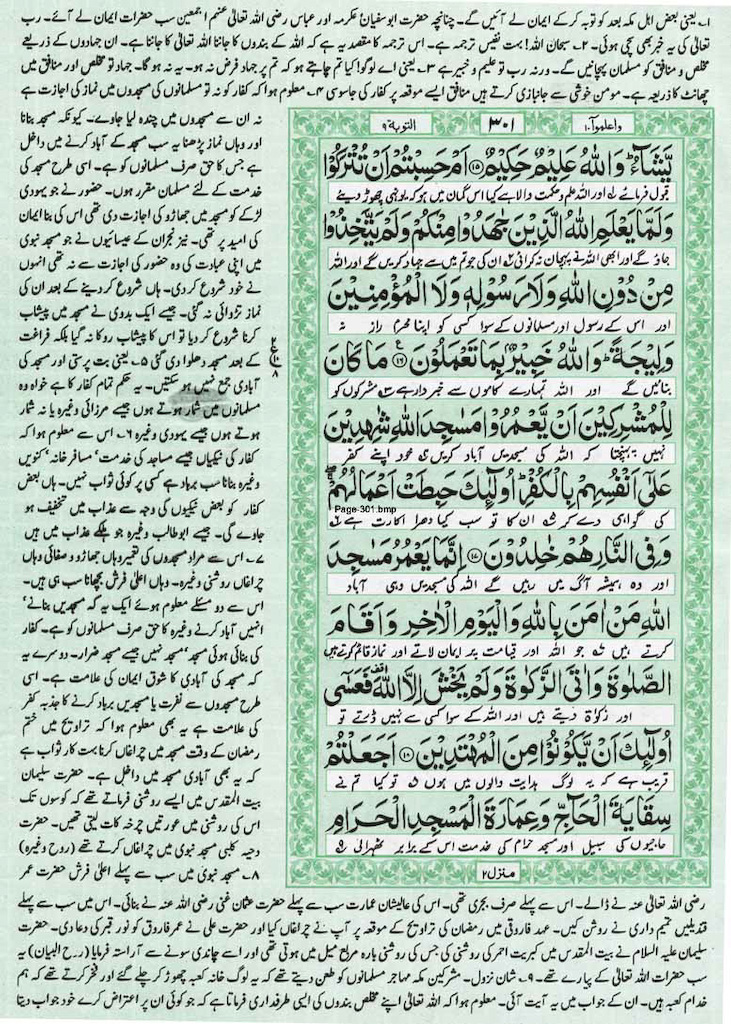 ۱۔ یعنی بعض اہل مکہ بعد کو توبہ کر کے ایمان لے آئیں گے۔ چنانچہ حضرت ابوسفیان عکرمہ اور عباس رضی اللہ تعالیٰ عنہم اجمعین سب حضرات ایمان لے آئے۔ رب
تعالیٰ کی یہ خبر بھی سچی ہوئی۔ ۲۔ سبحان اللہ! بہت نفیس ترجمہ ہے۔ اس ترجمہ کا مقصد یہ ہے کہ اللہ کے بندوں کا جاننا اللہ تعالیٰ کا جاننا ہے۔ ان جہادوں کے ذریعے
مخلص و منافق کو مسلمان پہچانیں گے۔ ورنہ رب تو علیم و خبیر ہے ۳۔ یعنی اے لوگو! کیا تم چاہتے ہو کہ تم پر جہاد فرض نہ ہو۔ یہ نہ ہو گا۔ جہاد تو مخلص اور منافق میں
چھانٹ کا ذریعہ ہے۔ مومن خوشی سے جانبازی کرتے ہیں منافق ایسے موقعہ پر کفار کی جاسوسی ۴۔ معلوم ہوا کہ کفار کو نہ تو مسلمانوں کی مسجدوں میں نماز کی اجازت ہے
واعلموآ۱۰
۳۰۱
التوبة ۹
یَّشَآءُ ؕ وَاللّٰهُ عَلِیْمٌ حَكِیْمٌ ﴿۱۵﴾ اَمْ حَسِبْتُمْ اَنْ تُتْرَكُوْا
قبول فرمائے ۱ اور اللہ علم و حکمت والا ہے کیا اس گمان میں ہو کہ یونہی چھوڑ دیئے
وَلَمَّا یَعْلَمِ اللّٰهُ الَّذِیْنَ جٰهَدُوْا مِنْكُمْ وَلَمْ یَتَّخِذُوْا
جاؤ گے اور ابھی اللہ نے پہچان نہ کرائی ۲ ان کی جو تم میں سے جہاد کریں گے اور اللہ
مِنْ دُوْنِ اللّٰهِ وَلَا رَسُوْلِهٖ وَلَا الْمُؤْمِنِیْنَ
اور اس کے رسول اور مسلمانوں کے سوا کسی کو اپنا محرم راز نہ
وَلِیْجَةً ؕ وَاللّٰهُ خَبِیْرٌۢ بِمَا تَعْمَلُوْنَ ﴿۱۶﴾ مَا كَانَ
بنائیں گے اور اللہ تمہارے کاموں سے خبردار ہے ۳ مشرکوں کو
لِلْمُشْرِكِیْنَ اَنْ یَّعْمُرُوْا مَسٰجِدَ اللّٰهِ شٰهِدِیْنَ
نہیں پہنچتا کہ اللہ کی مسجدیں آباد کریں ۴ خود اپنے کفر
عَلٰۤی اَنْفُسِهِمْ بِالْكُفْرِ ؕ اُولٰٓئِكَ حَبِطَتْ اَعْمَالُهُمْ
کی گواہی دے کر ۵ ان کا تو سب کیا دھرا اکارت ہے ۶
Page-301.bmp
وَفِی النَّارِ هُمْ خٰلِدُوْنَ ﴿۱۷﴾ اِنَّمَا یَعْمُرُ مَسٰجِدَ
اور وہ ہمیشہ آگ میں رہیں گے اللہ کی مسجدیں وہی آباد
اللّٰهِ مَنْ اٰمَنَ بِاللّٰهِ وَالْیَوْمِ الْاٰخِرِ وَاَقَامَ
کرتے ہیں ۷ جو اللہ اور قیامت پر ایمان لاتے اور نماز قائم کرتے ہیں
الصَّلٰوةَ وَاٰتَی الزَّكٰوةَ وَلَمْ یَخْشَ اِلَّا اللّٰهَ فَعَسٰۤی
اور زکوٰۃ دیتے ہیں اور اللہ کے سوا کسی سے نہیں ڈرتے تو
اُولٰٓئِكَ اَنْ یَّكُوْنُوْا مِنَ الْمُهْتَدِیْنَ ﴿۱۸﴾ اَجَعَلْتُمْ
قریب ہے کہ یہ لوگ ہدایت والوں میں ہوں ۸ تو کیا تم نے
سِقَایَةَ الْحَآجِّ وَعِمَارَةَ الْمَسْجِدِ الْحَرَامِ
حاجیوں کی سبیل اور مسجد حرام کی خدمت اس کے برابر ٹھہرالی ۹
منزل ۲
نہ ان سے مسجدوں میں چندہ لیا جاوے۔ کیونکہ مسجد بنانا
اور وہاں نماز پڑھنا یہ سب مسجد کے آباد کرنے میں داخل
ہے جس کا حق صرف مسلمانوں کو ہے۔ اسی طرح مسجد کی
خدمت کے لئے مسلمان مقرر ہوں۔ حضور نے جو یہودی
لڑکے کو مسجد میں جھاڑو کی اجازت دی تھی اس کی بنا ایمان
کی امید پر تھی۔ نیز نجران کے عیسائیوں نے جو مسجد نبوی
میں اپنی عبادت کی وہ حضور کی اجازت سے نہ تھی انہوں
نے خود شروع کر دی۔ ہاں شروع کر دینے کے بعد ان کی
نماز تڑوائی نہ گئی۔ جیسے ایک بدوی نے مسجد میں پیشاب
کرنا شروع کر دیا تو اس کا پیشاب روکا نہ گیا بلکہ فراغت
کے بعد مسجد دھلوا دی گئی ۵۔ یعنی بت پرستی اور مسجد کی
آبادی جمع نہیں ہو سکتیں۔ یہ حکم تمام کفار کا ہے خواہ وہ
مسلمانوں میں شمار ہوتے ہوں جیسے مرزائی وغیرہ یا نہ شمار
ہوتے ہوں جیسے یہودی وغیرہ ۶۔ اس سے معلوم ہوا کہ
کفار کی نیکیاں جیسے مساجد کی خدمت' مسافر خانہ' کنویں
وغیرہ بنانا سب برباد ہے کسی پر کوئی ثواب نہیں۔ ہاں بعض
کفار کو بعض نیکیوں کی وجہ سے عذاب میں تخفیف ہو
جاوے گی۔ جیسے ابوطالب وغیرہ جو ہلکے عذاب میں ہیں
۷۔ اس سے مراد مسجدوں کی تعمیر وہاں جھاڑو و صفائی وہاں
چراغاں روشنی وغیرہ۔ وہاں اعلیٰ فرش بچھانا سب ہی ہیں۔
اس سے دو مسئلے معلوم ہوئے ایک یہ کہ مسجدیں بنانے'
انہیں آباد کرنے وغیرہ کا حق صرف مسلمانوں کو ہے۔ کفار
کی بنائی ہوئی مسجد' مسجد نہیں جیسے مسجد ضرار۔ دوسرے یہ
کہ مسجد کی آبادی کا شوق ایمان کی علامت ہے۔ اسی
طرح مسجدوں سے نفرت یا مسجدیں برباد کرنے کا جذبہ کفر
کی علامت ہے یہ بھی معلوم ہوا کہ تراویح میں ختم
رمضان کے وقت مسجد میں چراغاں کرنا بہت کار ثواب ہے
کہ یہ بھی آبادی مسجد میں داخل ہے۔ حضرت سلیمان
بیت المقدس میں ایسے روشنی فرماتے تھے کہ کوسوں تک
اس کی روشنی میں عورتیں چرخہ کات لیتی تھیں۔ حضرت
دحیہ کلبی مسجد نبوی میں چراغاں کرتے تھے (روح وغیرہ)
۸۔ مسجد نبوی میں سب سے پہلے اعلیٰ فرش حضرت عمر
رضی اللہ تعالیٰ عنہ نے ڈالے۔ اس سے پہلے صرف بجری تھی۔ اس کی عالیشان عمارت سب سے پہلے حضرت عثمان غنی رضی اللہ عنہ نے بنائی۔ اس میں سب سے پہلے
قندیلیں تمیم داری نے روشن کیں۔ عہد فاروقی میں رمضان کی تراویح کے موقعہ پر آپ نے چراغاں کیا اور حضرت علی نے عمر فاروق کو نور قبر کی دعا دی۔ حضرت
سلیمان علیہ السلام نے بیت المقدس میں کبریت احمر کی روشنی کی جس کی روشنی بارہ مربع میل میں ہوتی تھی اور اسے چاندی سونے سے آراستہ فرمایا (روح البیان) یہ
سب حضرات اللہ تعالیٰ کے پیارے تھے۔ ۹۔ شان نزول۔ مشرکین مکہ مہاجر مسلمانوں کو طعن دیتے تھے کہ یہ لوگ خانہ کعبہ چھوڑ کر چلے گئے اور فخر کرتے تھے کہ ہم
خدام کعبہ ہیں۔ ان کے جواب میں یہ آیت آئی۔ معلوم ہوا کہ اللہ تعالیٰ اپنے مخلص بندوں کی ایسی طرفداری فرماتا ہے کہ جو کوئی ان پر اعتراض کرے خود جواب دیتا